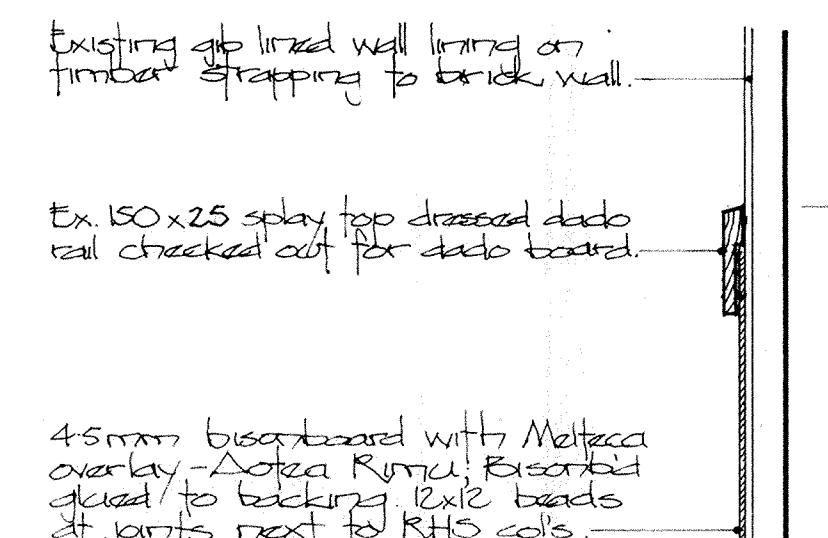 Existing gib lined wall lining on
timber strapping to brick wall.
Ex. 150 x 25 splay top dressed dado
rail checked out for dado board.
4.5mm bisonboard with Melteca
overlay - Aotea Rimu; Bisonb'd
glued to backing 12x12 beads
at joints next to RHS col's.